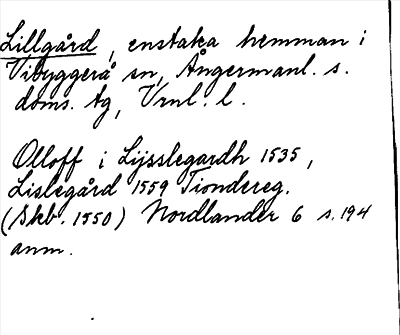 Lillgård, enstaka hemman i
Vibyggerå sn, Ångermanl. s.
doms. tg, Vrnl. l.
Olloff i Lijsslegardh 1535,
Lislegård 1559 Tiondereg.
(Skb. 1550) Nordlander 6 s. 194
anm.